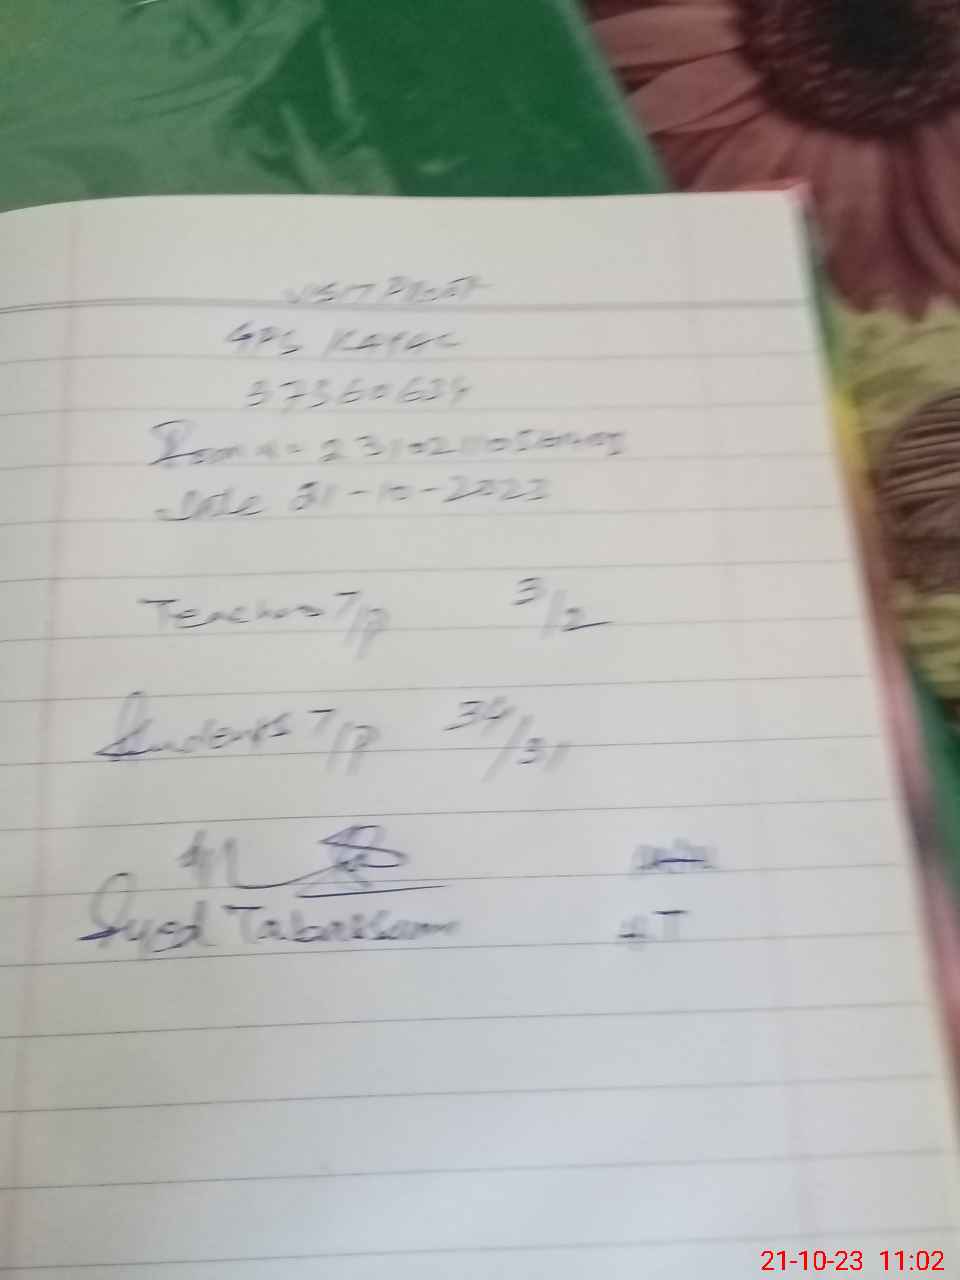 VISIT Proof
GPS
37360634
Date 21-10-2023
Teachers T/P 3/2
Students T/P 34/31
Syed Tabassum
HT
21-10-23 11:02